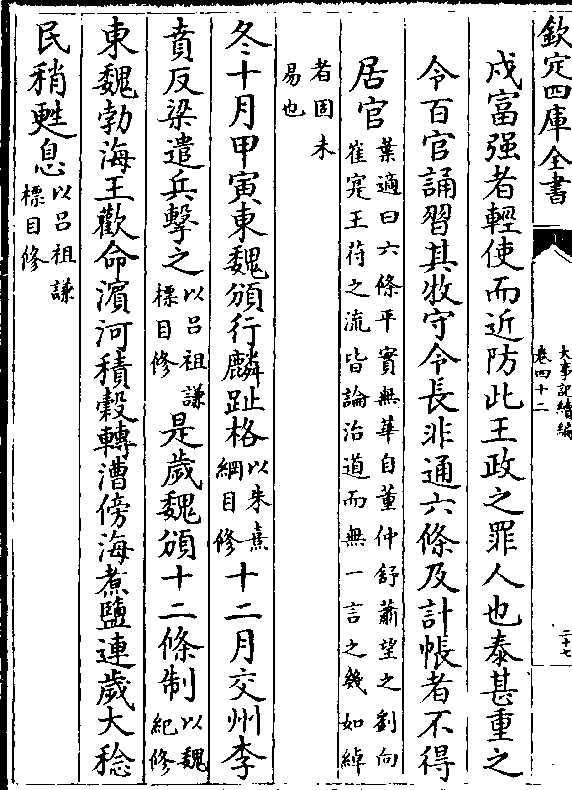 欽定四庫全書
大事記續編
卷四十二
二十七
戍富强者輕使而近防此王政之罪人也泰甚重之
令百官誦習其牧守令長非通六條及計帳者不得
居官葉適曰六條平實無華自董仲舒蕭望之劉向
崔寔王符之流皆論治道而無一言之幾如綽
者固未
易也
冬十月甲寅東魏頒行麟趾格以朱熹
綱目修十二月交州李
賁反梁遣兵擊之以吕祖謙
標目修是歲魏頒十二條制以魏
紀修
東魏勃海王歡命濱河積穀轉漕傍海煮鹽連歲大稔
民稍甦息以吕祖謙
標目修